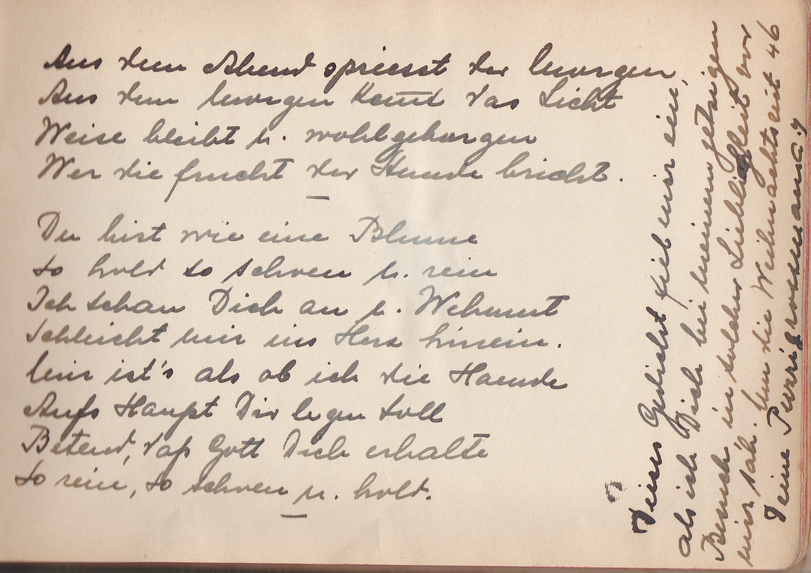 Aus dem Abend spriesst der Morgen,
Aus dem Morgen komt das Licht
Weise bleibt u. wohlgeborgen
Wer die frucht der Stunde bricht.
Du bist wie eine Blume
so hold so schoen u. rein
Ich schau Dich an u. Wehmut
Schleicht mir ins Herz hinein.
Mir ist's als ob ich die Haende
Aufs Haupt Dir legen soll
Betend, daß Gott Dich erhalte
So rein, so schoen u. hold.
Dieses Gedicht fiel mir ein,
als ich Dich bei meinem jetzigen
Besuch in solcher Lieblichkeit vor
mir sah. Um die Weihnachtszeit 46
Deine